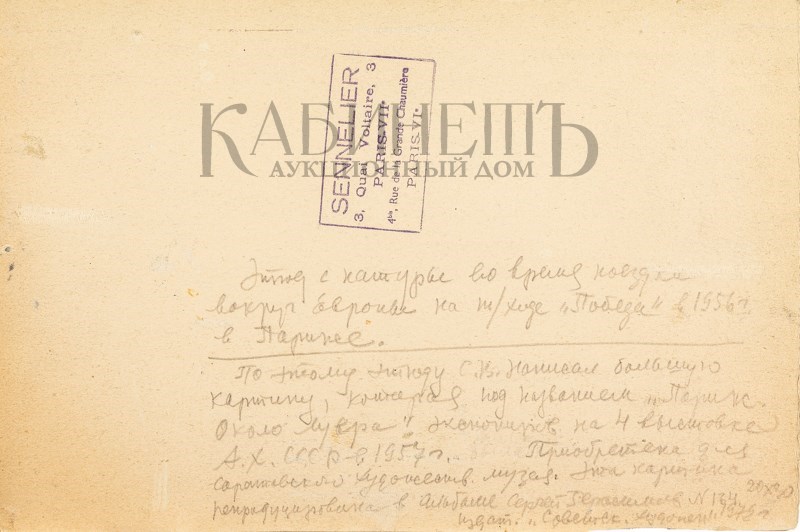 SENNELIER
3, Quai Voltaire, 3
PARIS-VII•
4bis, Rue de la Grande Chaumière
PARIS-VI•
КАБИНЕТЪ
АУКЦИОННЫЙ ДОМ
Этюд с натуры во время поездки
вокруг Европы на т/ходе „Победа" в 1956 г.
в Париже.
По этому этюду С.В. написал большую
картину, которая под названием „Париж.
Около Лувра" экспонир. на 4 выставке
А.Х. СССР в 1957 г. Приобретена для
Саратовского художеств. музея. Эта картина
репродуцирована в альбоме Сергей Герасимов N 164
издат. „Советск. художник" 1975 г.